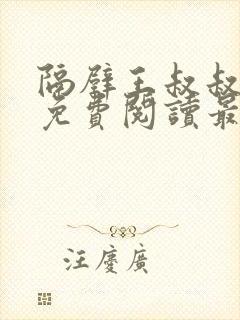 隔壁王叔叔
免費閱讀最
汪慶廣